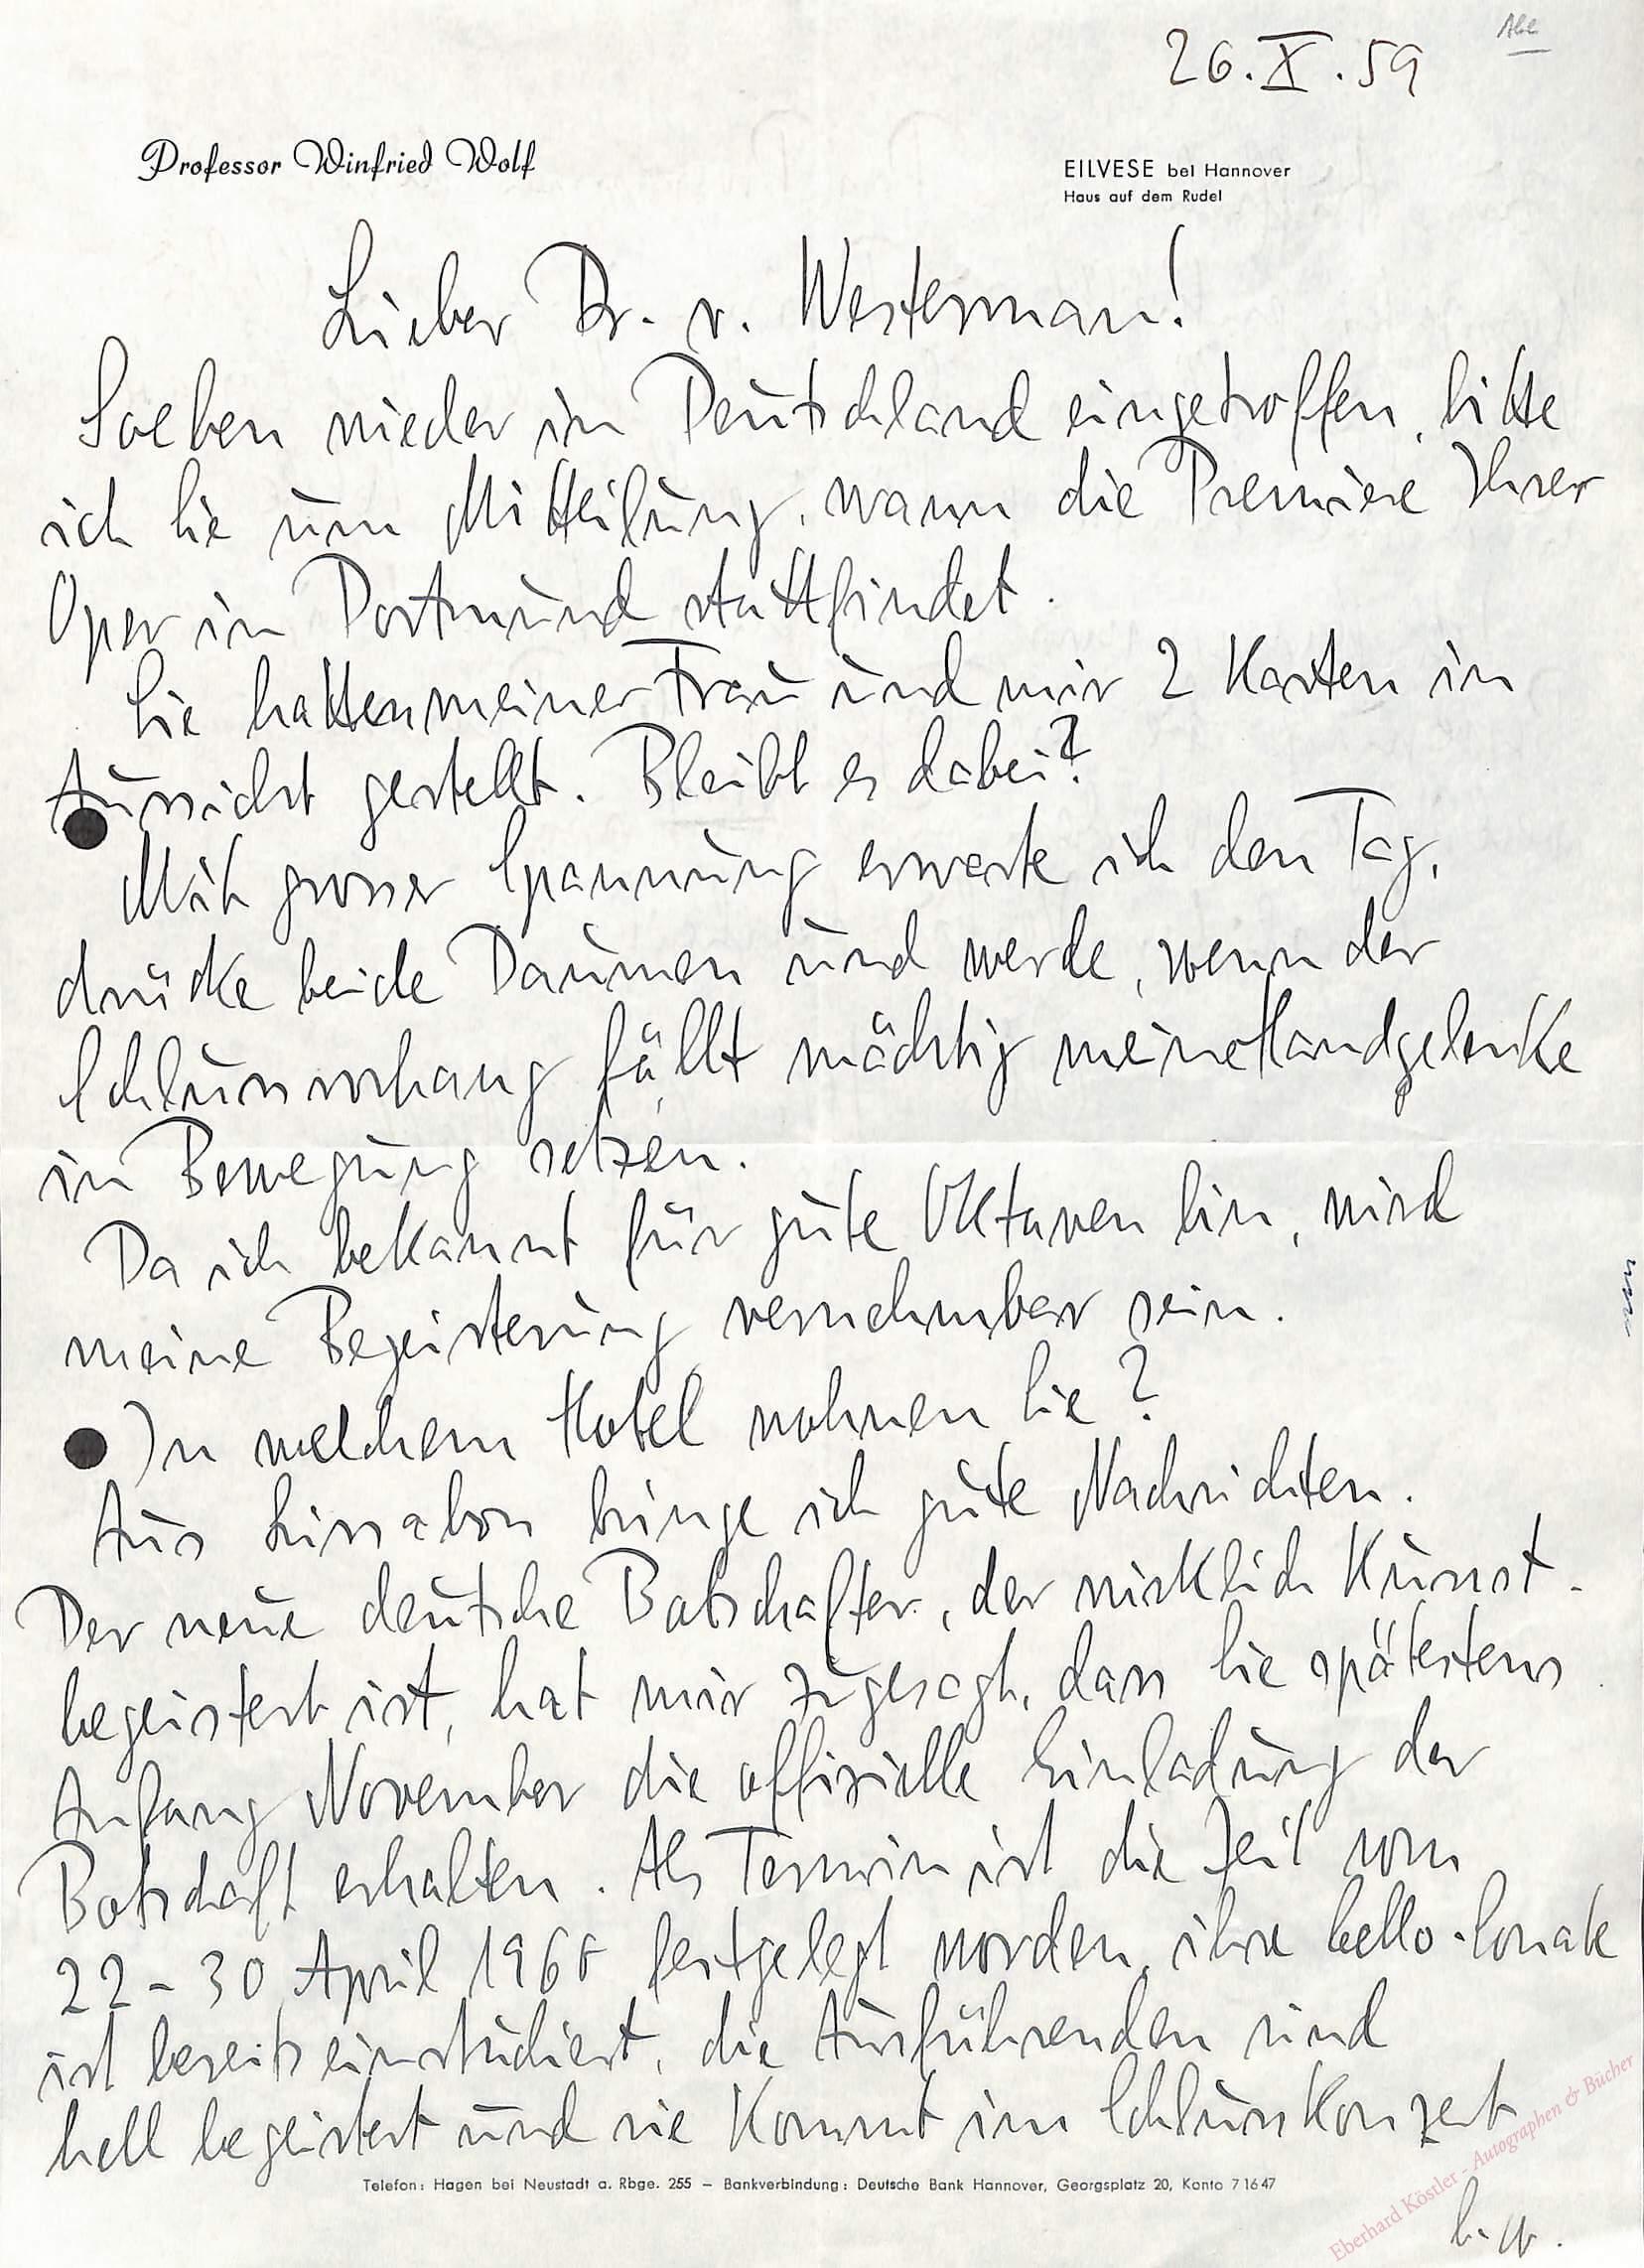 26.X.59
Professor Winfried Wolf
EILVESE bei Hannover
Haus auf dem Rudel
Lieber Dr. v. Westerman!
Soeben wieder in Deutschland eingetroffen, bitte
ich Sie um Mitteilung, wann die Premiere Ihrer
Oper in Dortmund stattfindet.
Sie hatten meiner Frau und mir 2 Karten in
Aussicht gestellt. Bleibt es dabei?
Mit grosser Spannung erwarte ich den Tag,
drücke beide Daumen und werde, wenn der
Schlussvorhang fällt mächtig meine Handgelenke
in Bewegung setzen.
Da ich bekannt für gute Oktaven bin, wird
meine Begeisterung vernehmbar sein.
In welchem Hotel wohnen Sie?
Aus Lissabon bringe ich gute Nachrichten.
Der neue deutsche Botschafter, der wirklich Kunst-
begeistert ist, hat mir zugesagt, dass Sie spätestens
Anfang November die offizielle Einladung der
Botschaft erhalten. Als Termin ist die Zeit vom
22-30 April 1960 festgelegt worden, ihre Cello-Sonate
ist bereits einstudiert, die Ausführenden sind
hell begeistert und sie kommt im Schlusskonzert
Telefon: Hagen bei Neustadt a. Rbge. 255 – Bankverbindung: Deutsche Bank Hannover, Georgsplatz 20, Konto 71647
b.w.
Eberhard Köstler - Autographen & Bücher